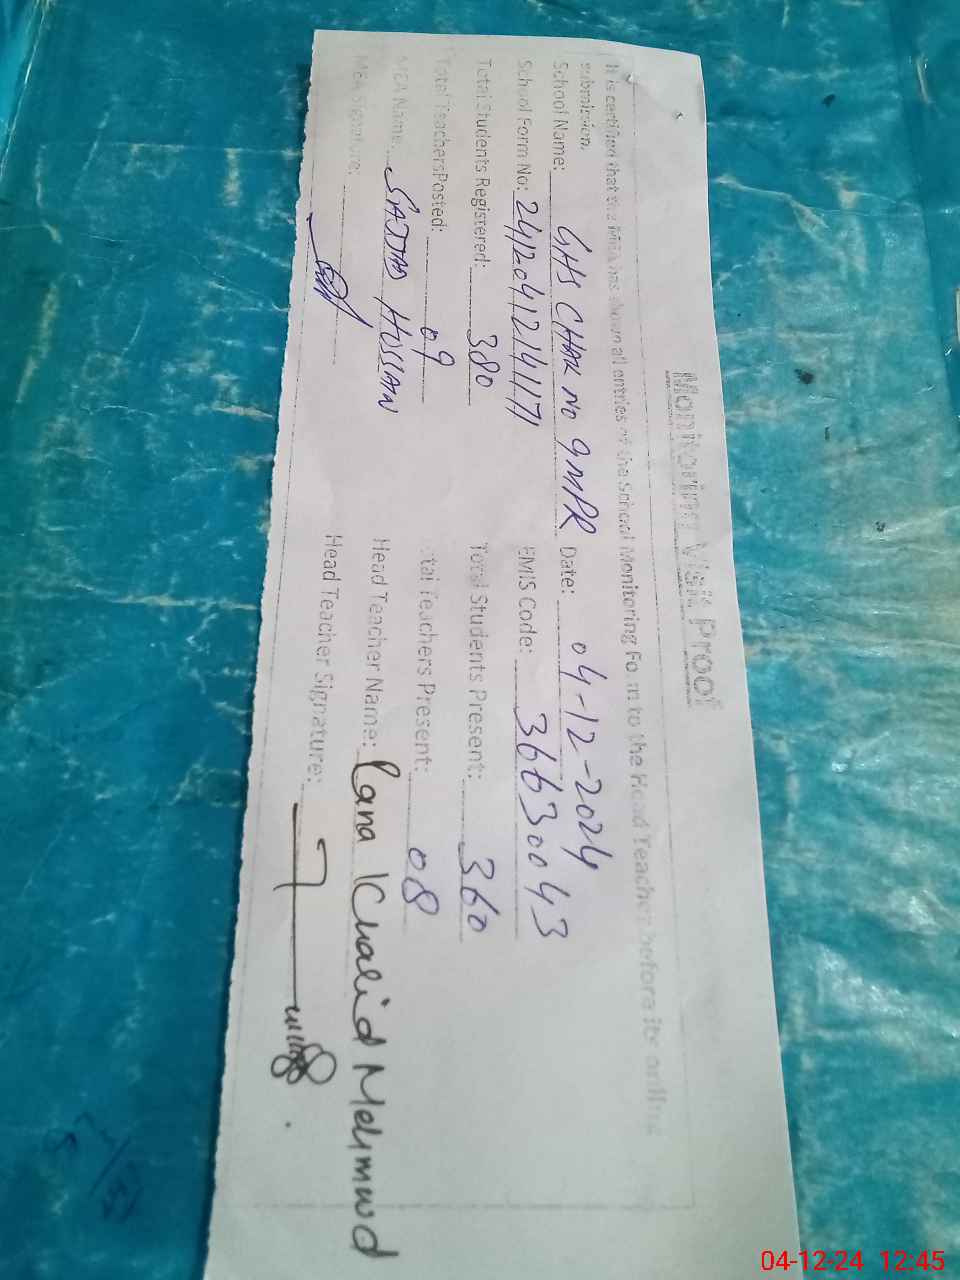 Monitoring Visit Proof
It is certified that the MEA has shown all entries of the School Monitoring Form to the Head Teacher before its online
submission.
School Name: GHS CHAK NO 9MPR Date: 04-12-2024
School Form No: EMIS Code: 36630043
Total Students Registered: 380 Total Students Present: 360
Total TeachersPosted: 09 Total Teachers Present: 08
MEA Name: SAJJAD HUSSAIN Head Teacher Name: Rana Khalid Mehmwd
MEA Signature: Head Teacher Signature:
04-12-24 12:45